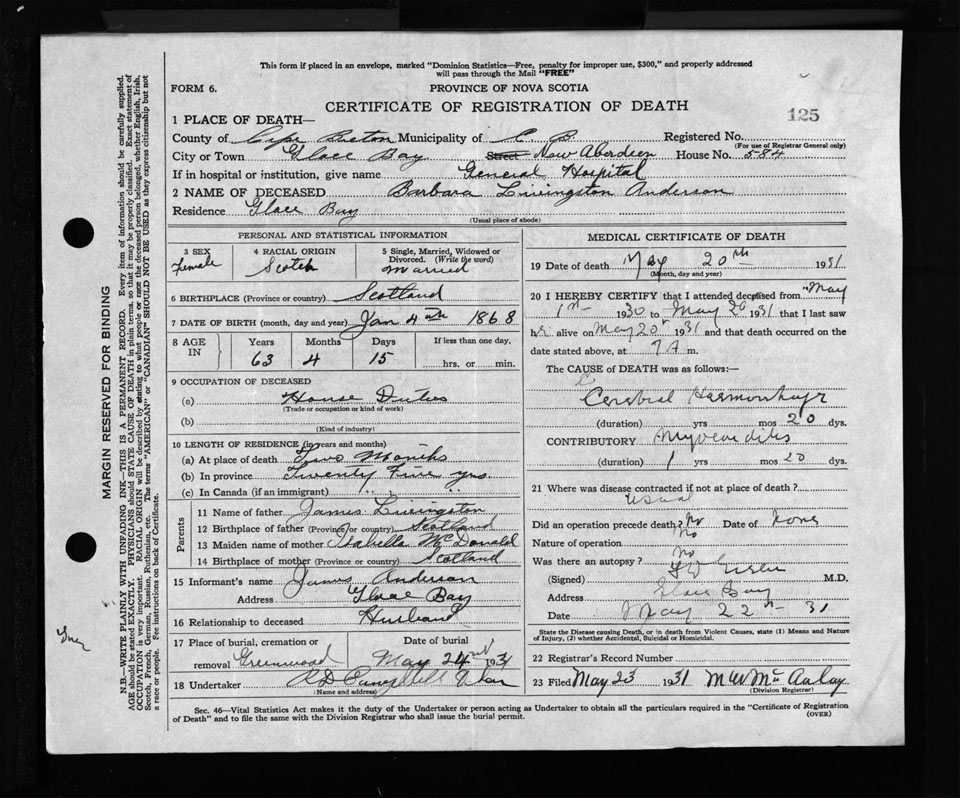 This form if placed in an envelope, marked "Dominion Statistics—Free, penalty for improper use, $300," and properly addressed
will pass through the Mail "FREE"
FORM 6.
PROVINCE OF NOVA SCOTIA
CERTIFICATE OF REGISTRATION OF DEATH
125
1 PLACE OF DEATH—
County of Cape Breton Municipality of C B Registered No.
(For use of Registrar General only)
City or Town Glace Bay Street New Aberdeen House No. 584
If in hospital or institution, give name General Hospital
2 NAME OF DECEASED Barbara Livingston Anderson
Residence Glace Bay
(Usual place of abode)
PERSONAL AND STATISTICAL INFORMATION
3 SEX Female
4 RACIAL ORIGIN Scotch
5 Single, Married, Widowed or Divorced. (Write the word) Married
6 BIRTHPLACE (Province or country) Scotland
7 DATE OF BIRTH (month, day and year) Jan 4th 1868
8 AGE IN Years 63 Months 4 Days 15 If less than one day, hrs. or min.
9 OCCUPATION OF DECEASED
(a) House Duties
(Trade or occupation or kind of work)
(b)
(Kind of industry)
10 LENGTH OF RESIDENCE (in years and months)
(a) At place of death Two Months
(b) In province Twenty Five yrs.
(c) In Canada (if an immigrant)
Parents
11 Name of father James Livingston
12 Birthplace of father (Province or country) Scotland
13 Maiden name of mother Isabella McDonald
14 Birthplace of mother (Province or country) Scotland
15 Informant's name James Anderson
Address Glace Bay
16 Relationship to deceased Husband
17 Place of burial, cremation or removal Greenwood
Date of burial May 24 1931
18 Undertaker A D Campbell
(Name and address)
MEDICAL CERTIFICATE OF DEATH
19 Date of death May 20th 1931
(Month, day and year)
20 I HEREBY CERTIFY that I attended deceased from May
1st 1930 to May 20 1931 that I last saw
her alive on May 20 1931 and that death occurred on
date stated above, at 7 A m.
The CAUSE of DEATH was as follows:—
Cerebral Haemorrhage
(duration) yrs mos 20 dys.
CONTRIBUTORY Myocarditis
(duration) 1 yrs mos 20 dys.
21 Where was disease contracted if not at place of death?
Usual
Did an operation precede death? No Date of None
Nature of operation No
Was there an autopsy? No
(Signed) M.D.
Address Glace Bay
Date May 22 31
State the Disease causing Death, or in death from Violent Causes, state (1) Means and Nature
of Injury, (2) whether Accidental, Suicidal or Homicidal.
22 Registrar's Record Number
23 Filed May 23 1931 M W McAulay
(Division Registrar)
Sec. 46—Vital Statistics Act makes it the duty of the Undertaker or person acting as Undertaker to obtain all the particulars required in the "Certificate of Registration
of Death" and to file the same with the Division Registrar who shall issue the burial permit.
(OVER)
MARGIN RESERVED FOR BINDING
N.B.—WRITE PLAINLY WITH UNFADING INK—THIS IS A PERMANENT RECORD. Every item of information should be carefully supplied.
AGE should be stated EXACTLY. PHYSICIANS should STATE CAUSE OF DEATH in plain terms, so that it may be properly classified. Exact statement of
OCCUPATION is very important. RACIAL ORIGIN will be described by stating to what people or race the deceased person belonged, whether English, Irish,
Scotch, French, German, Russian, Ruthenian, etc. The terms "AMERICAN" or "CANADIAN" SHOULD NOT BE USED as they express citizenship but not
a race or people. Fee instructions on back of Certificate.